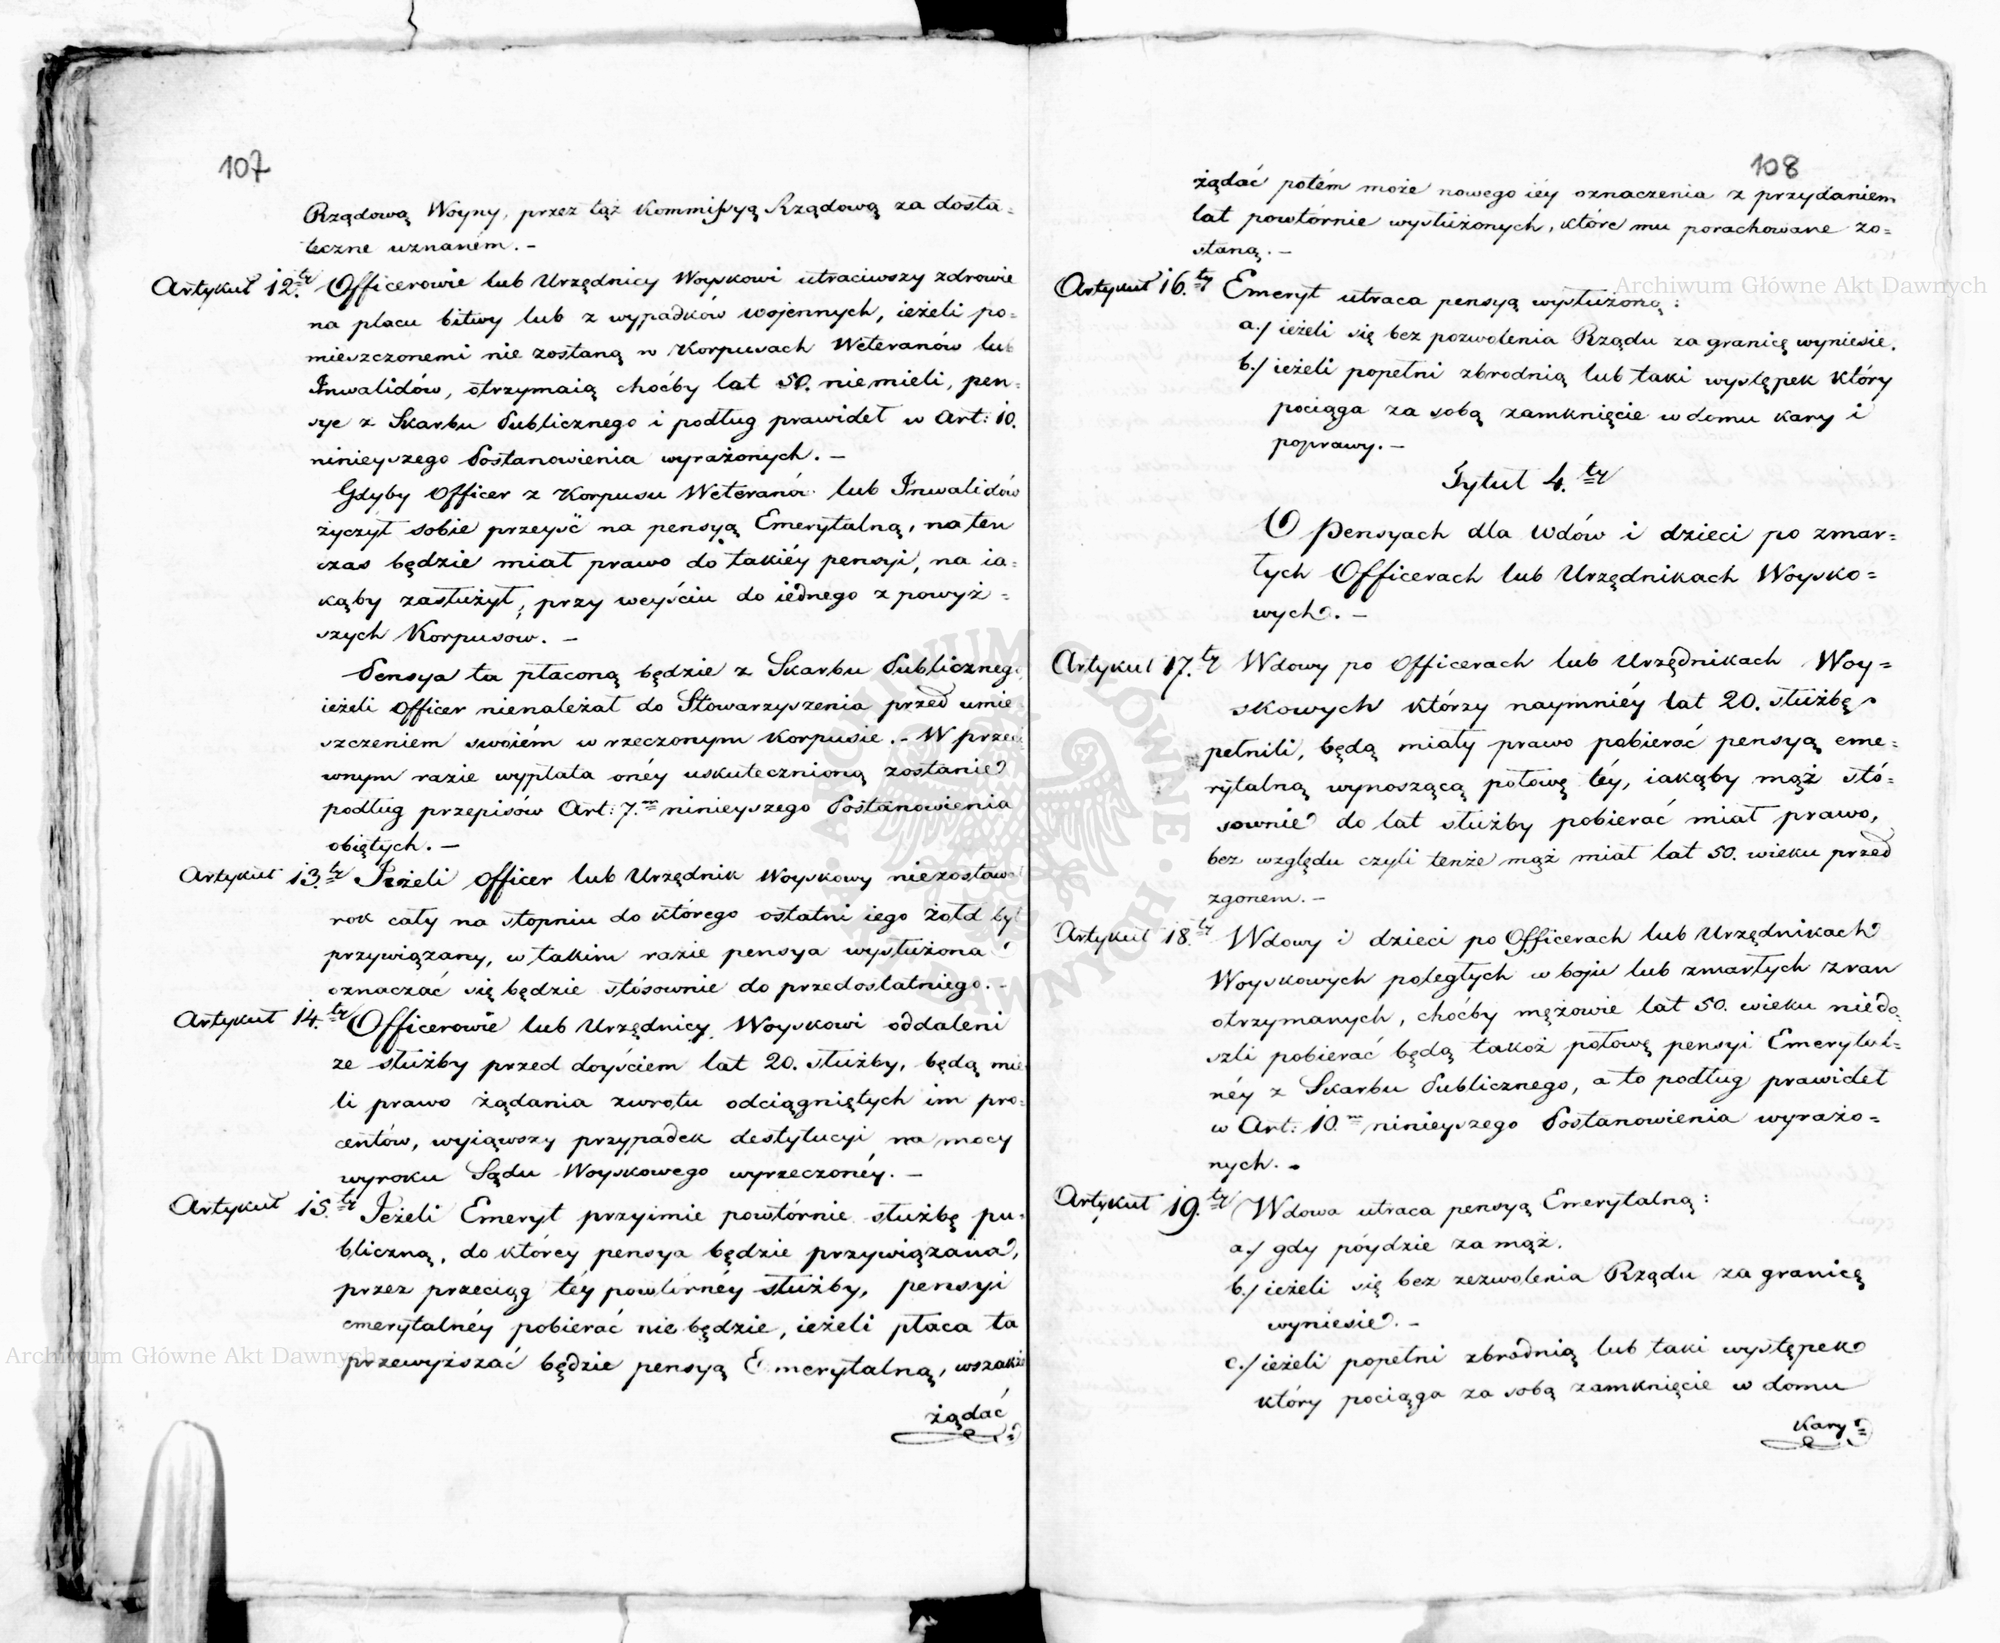 107
Rządową Woyny, przez tąż Kommissyą Rządową za dosta=
teczne uznaném. –
Artykuł 12.ty Officerowie lub Urzędnicy Woyskowi utraciwszy zdrowie
na placu bitwy lub z wypadków wojennych, ieżeli po=
mieszczonemi nie zostaną w Korpusach Weteranów lub
Inwalidów, otrzymaią choćby lat 50. niemieli, pen=
sye z Skarbu Publicznego i podług prawideł w Art: 10.
ninieyszego Postanowienia wyrażonych. –
Gdyby Officer z Korpusu Weteranów lub Inwalidów
życzył sobie przeyść na pensyą Emerytalną, na ten
czas będzie miał prawo do takiéy pensyi, na ia=
kąby zasłużył, przy weyściu do iednego z powyż=
szych Korpusów. –
Pensya ta płaconą będzie z Skarbu Publicznego
ieżeli Officer nienależał do Stowarzyszenia przed umie
szczeniem swoiém w rzeczonym Korpusie. – W przeci
wnym razie wypłata onéy uskutecznioną zostanie
podług przepisów Art: 7.mo ninieyszego Postanowienia
obiętych. –
Artykuł 13.ty Jeżeli Officer lub Urzędnik Woyskowy niezostawał
rok cały na stopniu do którego ostatni iego żołd był
przywiązany, w takim razie pensya wysłużona
oznaczać się będzie stósownie do przedostatniego. –
Artykuł 14.ty Officerowie lub Urzędnicy Woyskowi oddaleni
ze służby przed doyściem lat 20. służby, będą mie
li prawo żądania zwrotu odciągniętych im pro=
centów, wyiąwszy przypadek destytucyi na mocy
wyroku Sądu Woyskowego wyrzeczonéy. –
Artykuł 15.ty Jeżeli Emeryt przyimie powtórnie służbę pu=
bliczną, do którey pensya będzie przywiązana,
przez przeciąg téy powtórnéy służby, pensyi
emerytalnéy pobierać nie będzie, ieżeli płaca ta
przewyższać będzie pensyą Emerytalną, wszakże
żądać
108
żądać potém może nowego iéy oznaczenia z przydaniem
lat powtórnie wysłużonych, które mu porachowane zo=
staną. –
Artykuł 16.ty Emeryt utraca pensyą wysłużoną:
a./ ieżeli się bez pozwolenia Rządu za granicę wyniesie.
b./ ieżeli popełni zbrodnią lub taki występek który
pociąga za sobą zamknięcie w domu kary i
poprawy. –
Tytuł 4.ty
O Pensyach dla Wdów i dzieci po zmar=
łych Officerach lub Urzędnikach Woysko=
wych. –
Artykuł 17.ty Wdowy po Officerach lub Urzędnikach Woy=
skowych którzy naymniéy lat 20. służbę
pełnili, będą miały prawo pobierać pensyą eme=
rytalną wynoszącą połowę téy, iakąby mąż stó=
sownie do lat służby pobierać miał prawo,
bez względu czyli tenże mąż miał lat 50. wieku przed
zgonem. –
Artykuł 18.ty Wdowy i dzieci po Officerach lub Urzędnikach
Woyskowych poległych w boju lub zmarłych z ran
otrzymanych, choćby mężowie lat 50. wieku niedo=
szli pobierać będą takoż połowę pensyi Emerytal=
néy z Skarbu Publicznego, a to podług prawideł
w Art: 10.mo ninieyszego Postanowienia wyrażo=
nych. –
Artykuł 19.ty Wdowa utraca pensyą Emerytalną:
a./ gdy póydzie za mąż.
b./ ieżeli się bez zezwolenia Rządu za granicę
wyniesie. –
c./ ieżeli popełni zbrodnią lub taki występek
który pociąga za sobą zamknięcie w domu
kary =
Archiwum Główne Akt Dawnych
Archiwum Główne Akt Dawnych
ARCHIWUM GŁÓWNE AKT DAWNYCH